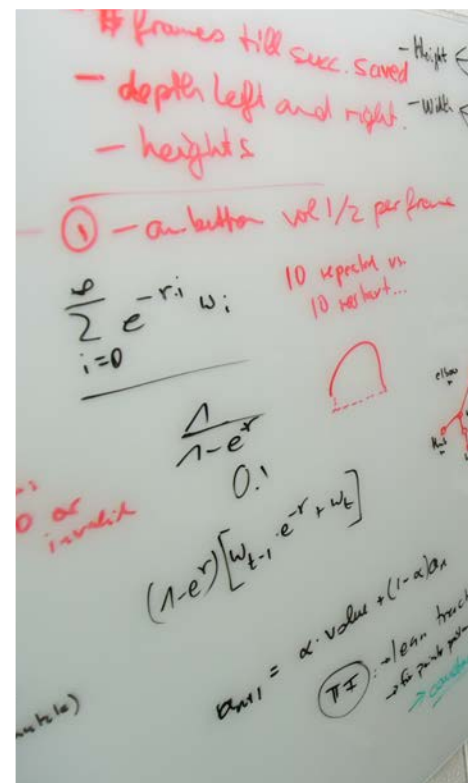 # frames till succ. saved
- Height
- depth left and right.
- Width
- heights
① - on button vol 1/2 per frame
∞
∑ e^{-r·i} w_i
i=0
10 repeated vs.
10 restart...
elbow
1
1-e^r
0.1
0 or
invalid
(1-e^r)[w_{t-1}·e^{-r} + w_t]
a_{n+1} = α·value + (1-α)a_n
: → learn
→ for